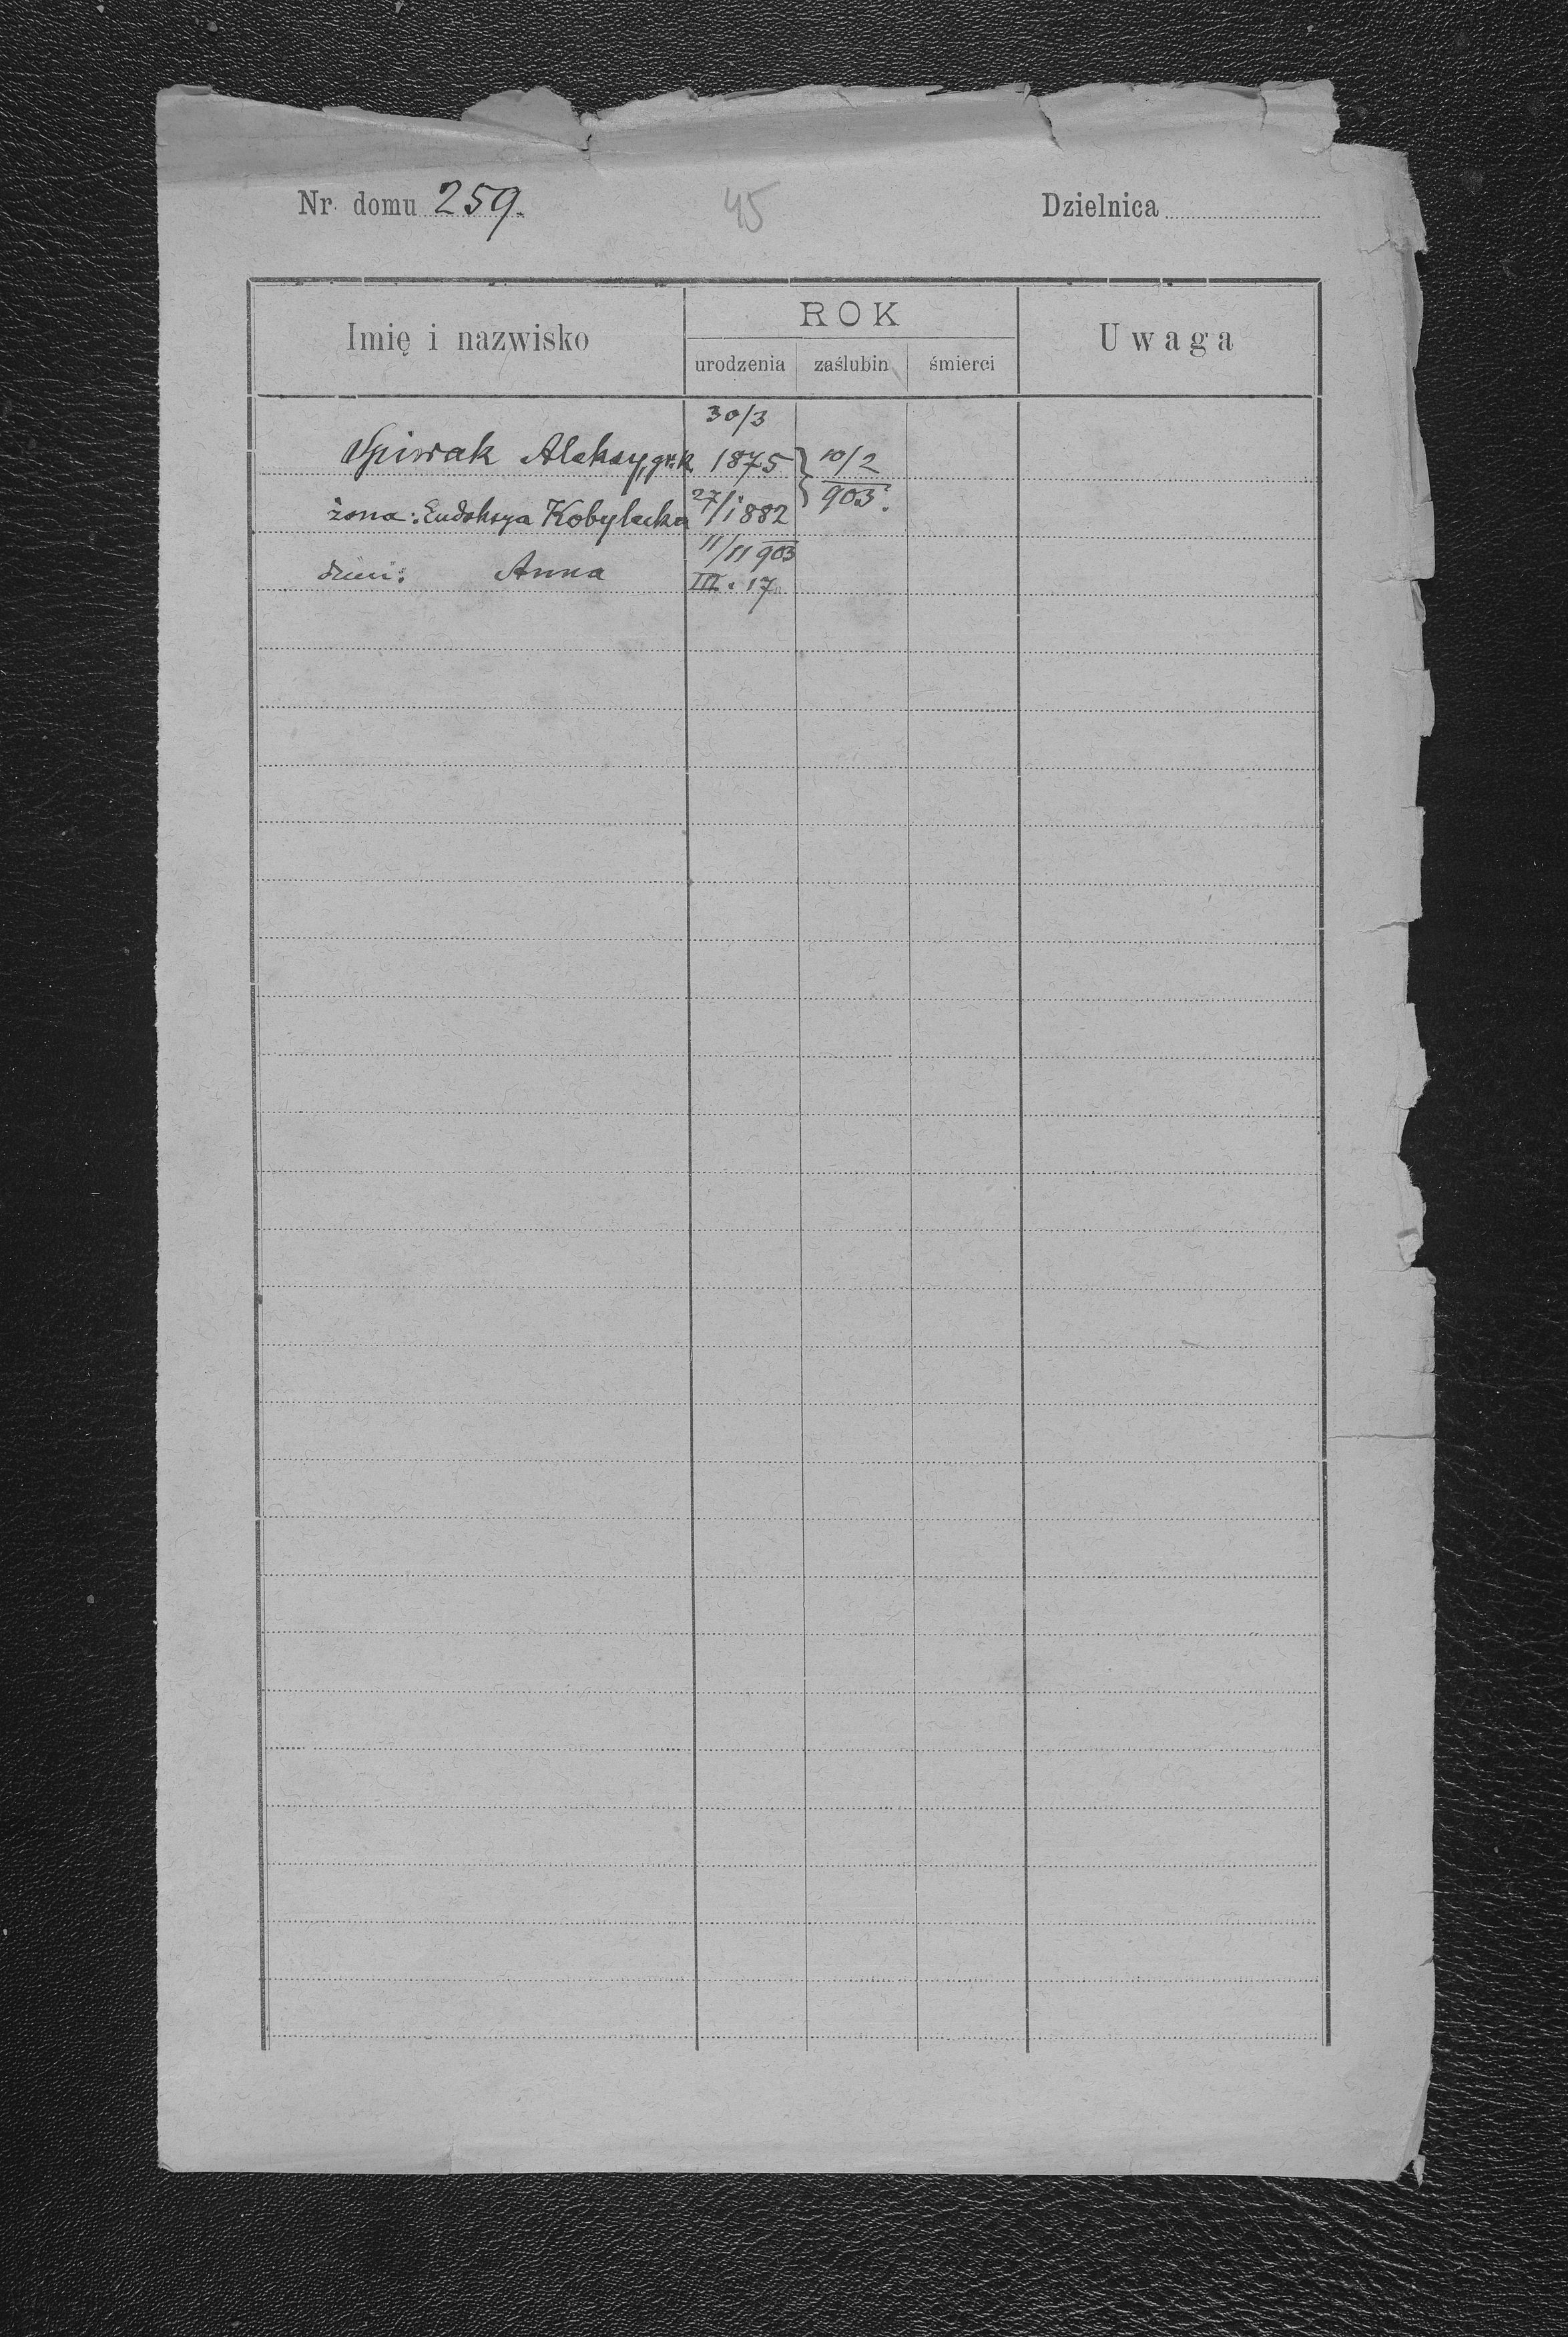 Nr. domu 259. 45 Dzielnica
Imię i nazwisko ROK Uwaga
urodzenia zaślubin śmierci
30/3
Spiwak Aleksy, gr. k. 1875 10/2
żona: Eudoksya Kobylecka 27/1 882 903.
11/11 903
dzieci: Anna III. 17